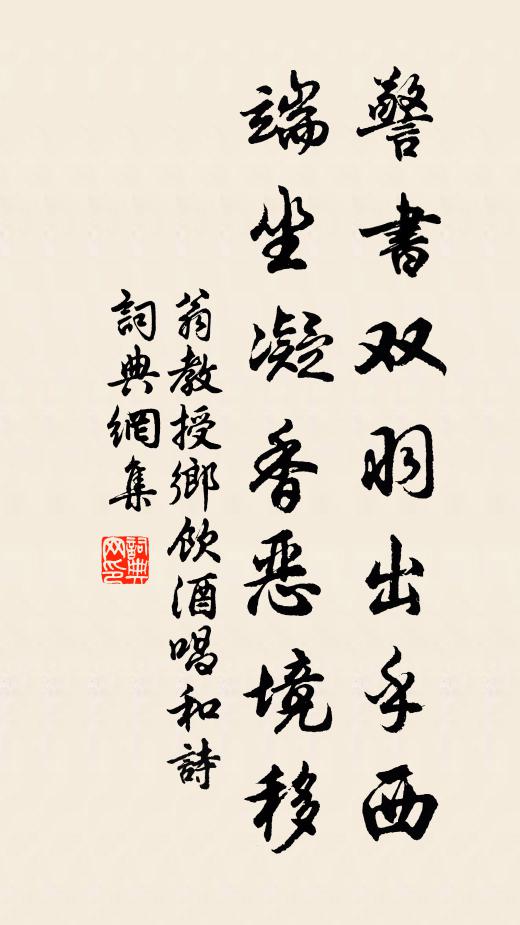 警書双羽出乎西
端坐凝香恶境移
翁教授鄉飲酒唱和詩
詞典網集
詞典
网印